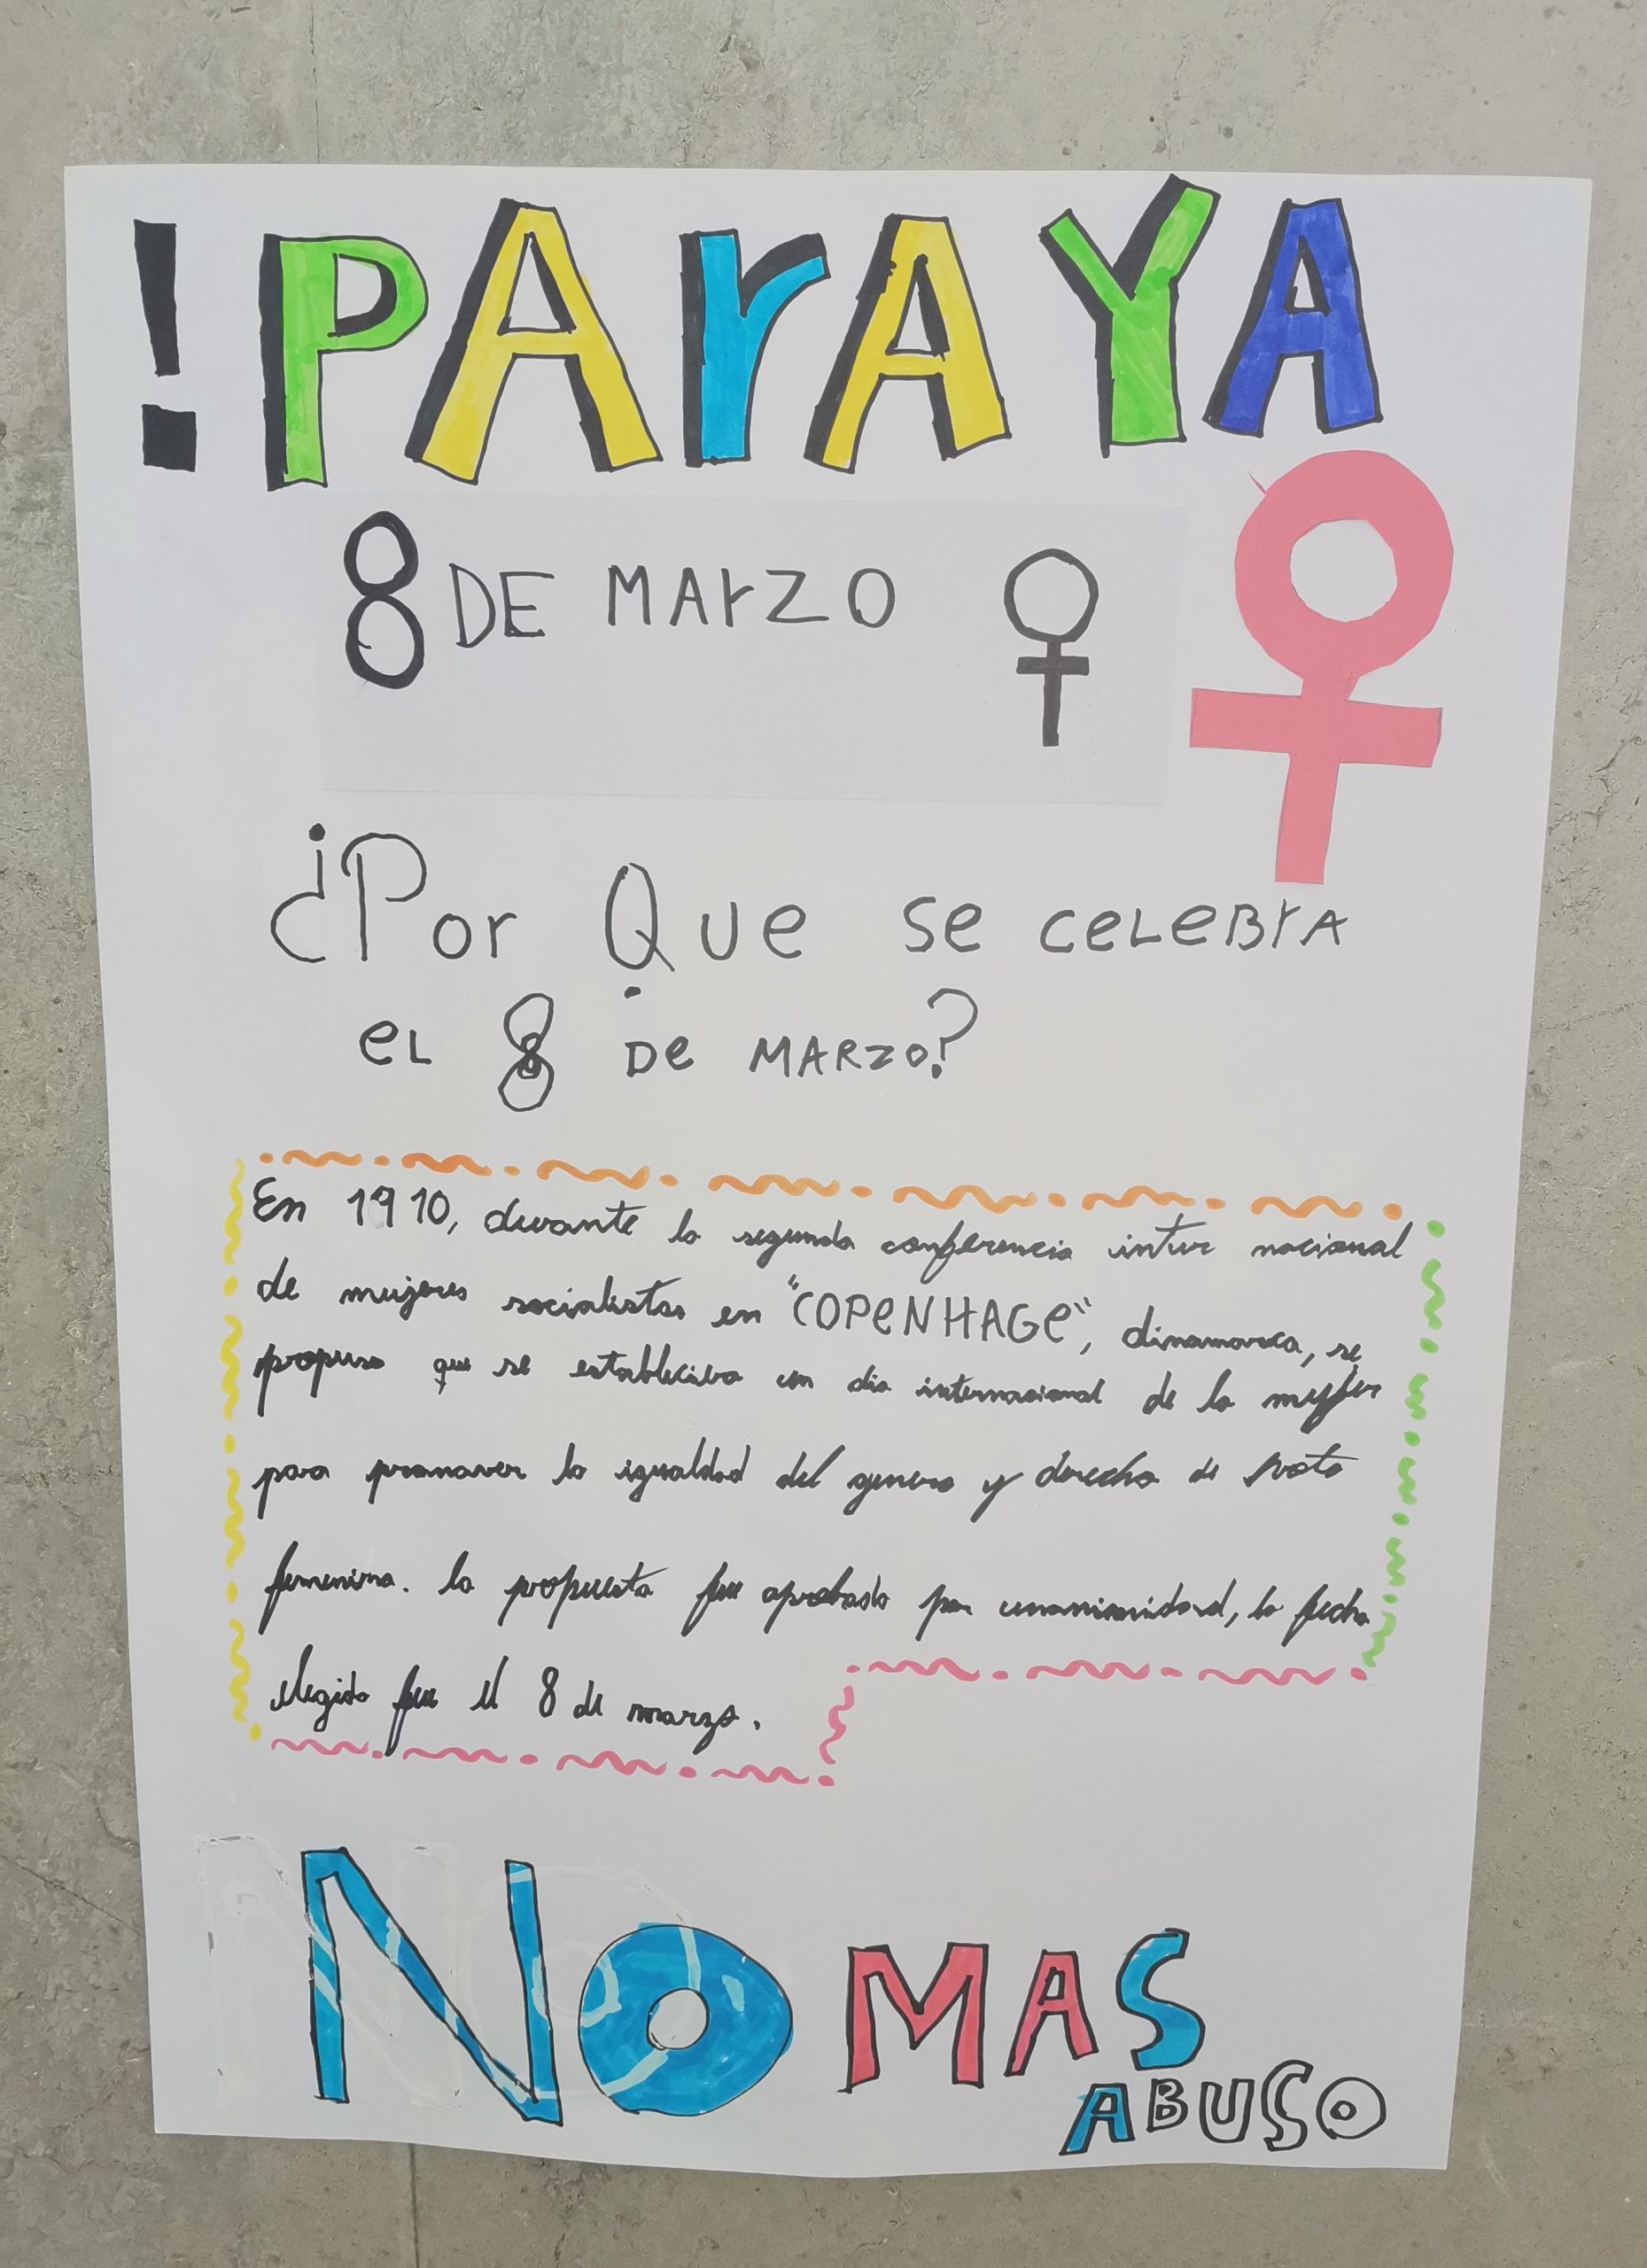 !PArAYA
8 DE MArZO
¿Por Que se ceLeBrA
eL 8 De MARZO?
En 1910, durante la segunda conferencia inter nacional
de mujeres socialistas en "COPeNHAGe", dinamarca, se
propuso que se estableciera un dia internacional de la mujer
para promover la igualdad del genero y derecho de voto
femenino. la propuesta fue aprobada por unanimidad, la fecha
elegida fue el 8 de marzo.
NO MAS
ABUSO